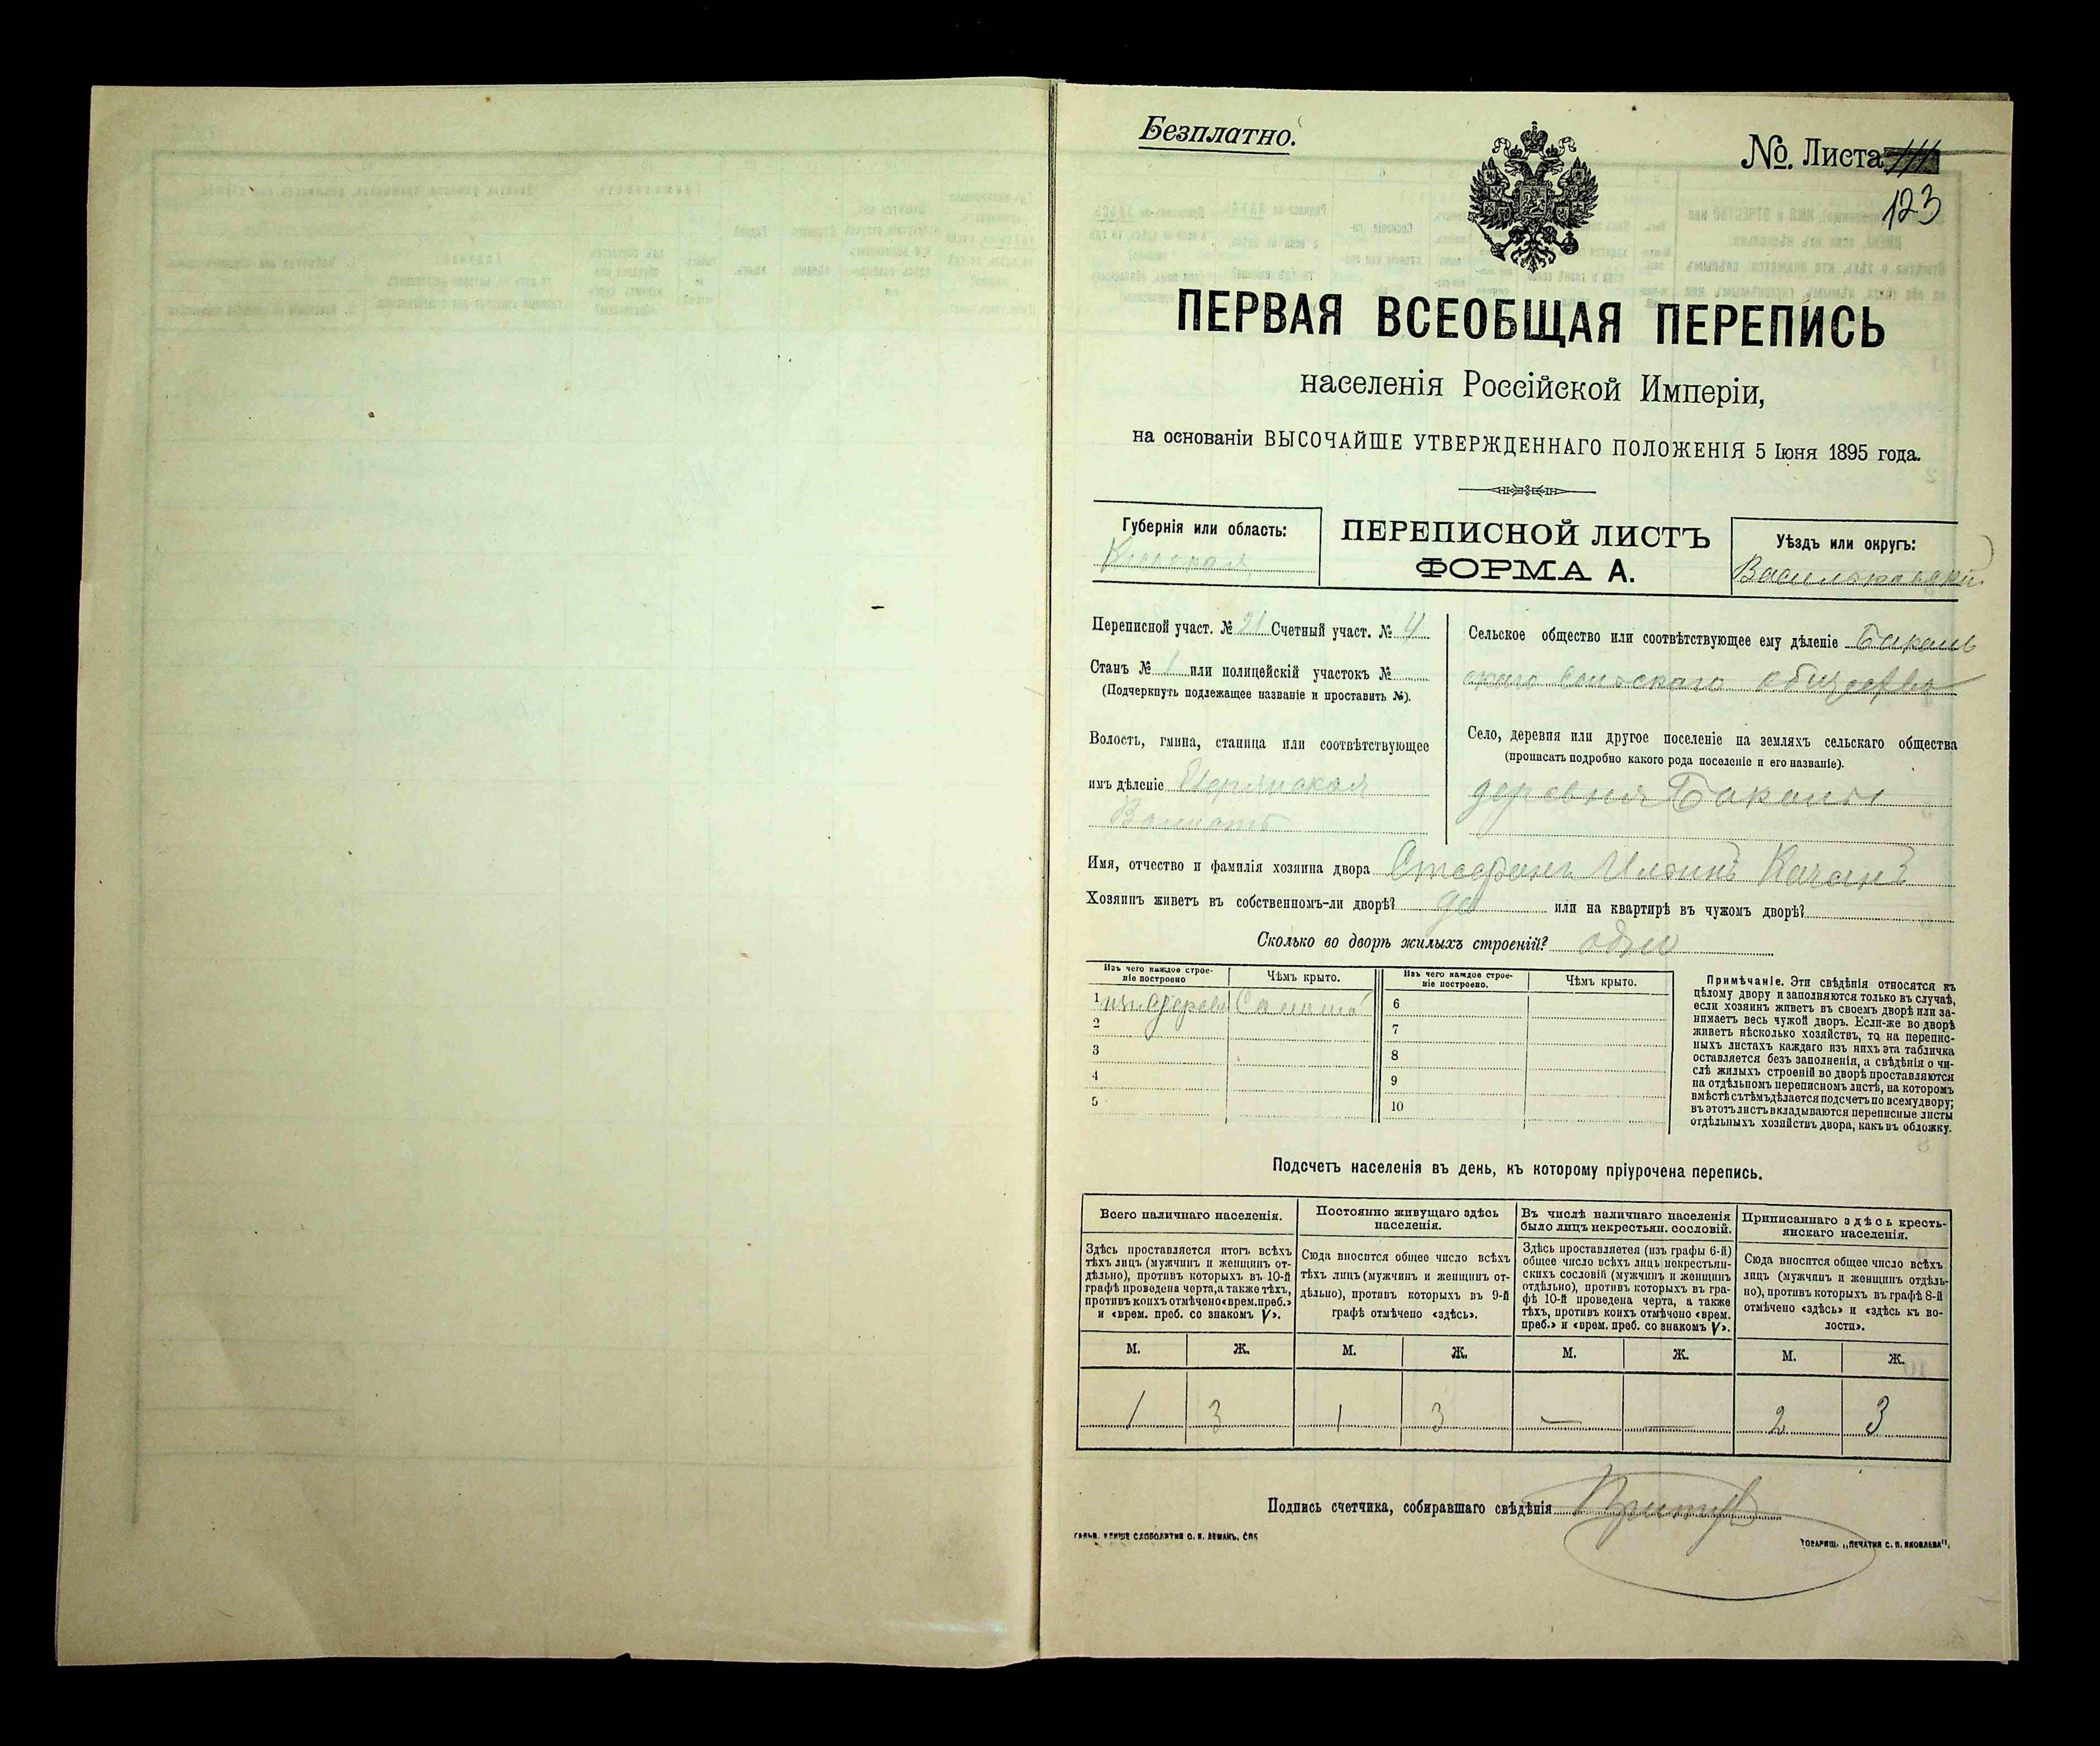 Безплатно.
№. Листа
123
ПЕРВАЯ ВСЕОБЩАЯ ПЕРЕПИСЬ
населенія Россійской Имперіи,
на основаніи ВЫСОЧАЙШЕ УТВЕРЖДЕННАГО ПОЛОЖЕНІЯ 5 Іюня 1895 года.
Губернія или область:
Кіевская
ПЕРЕПИСНОЙ ЛИСТЪ
ФОРМА А.
Уѣздъ или округъ:
Васильковскій
Переписной участ. № 21 Счетный участ. № 4
Станъ № 1 или полицейскій участокъ №
(Подчеркнуть подлежащее названіе и проставить №).
Волость, гмина, станица или соотвѣтствующее
имъ дѣленіе
Сельское общество или соотвѣтствующее ему дѣленіе
скаго сельскаго общества
Село, деревня или другое поселеніе на земляхъ сельскаго общества
(прописать подробно какого рода поселеніе и его названіе).
деревня Бакалы
Имя, отчество и фамилія хозяина двора Стефанъ Ильинъ Качанъ
Хозяинъ живетъ въ собственномъ-ли дворѣ? да или на квартирѣ въ чужомъ дворѣ?
Сколько во дворѣ жилыхъ строеній? одно
Изъ чего каждое строе-
ніе построено
Чѣмъ крыто.
Изъ чего каждое строе-
ніе построено.
Чѣмъ крыто.
1 6
2 7
3 8
4 9
5 10
Примѣчаніе. Эти свѣдѣнія относятся къ
цѣлому двору и заполняются только въ случаѣ,
если хозяинъ живетъ въ своемъ дворѣ или за-
нимаетъ весь чужой дворъ. Если-же во дворѣ
живетъ нѣсколько хозяйствъ, то на перепис-
ныхъ листахъ каждаго изъ нихъ эта табличка
оставляется безъ заполненія, а свѣдѣнія о чи-
слѣ жилыхъ строеній во дворѣ проставляются
на отдѣльномъ переписномъ листѣ, на которомъ
вмѣстѣ съ тѣмъ дѣлается подсчетъ по всему двору;
въ этотъ листъ вкладываются переписные листы
отдѣльныхъ хозяйствъ двора, какъ въ обложку.
Подсчетъ населенія въ день, къ которому пріурочена перепись.
Всего наличнаго населенія.
Здѣсь проставляется итогъ всѣхъ
тѣхъ лицъ (мужчинъ и женщинъ от-
дѣльно), противъ которыхъ въ 10-й
графѣ проведена черта, а также тѣхъ,
противъ коихъ отмѣчено «врем. преб.»
и «врем. преб. со знакомъ V».
Постоянно живущаго здѣсь
населенія.
Сюда вносится общее число всѣхъ
тѣхъ лицъ (мужчинъ и женщинъ от-
дѣльно), противъ которыхъ въ 9-й
графѣ отмѣчено «здѣсь».
Въ числѣ наличнаго населенія
было лицъ некрестьян. сословій.
Здѣсь проставляется (изъ графы 6-й)
общее число всѣхъ лицъ некрестьян-
скихъ сословій (мужчинъ и женщинъ
отдѣльно), противъ которыхъ въ гра-
фѣ 10-й проведена черта, а также
тѣхъ, противъ коихъ отмѣчено «врем.
преб.» и «врем. преб. со знакомъ V».
Приписаннаго здѣсь кресть-
янскаго населенія.
Сюда вносится общее число всѣхъ
лицъ (мужчинъ и женщинъ отдѣль-
но), противъ которыхъ въ графѣ 8-й
отмѣчено «здѣсь» и «здѣсь къ во-
лости».
М. Ж. М. Ж. М. Ж. М. Ж.
1 3 1 3 — — 2 3
Подпись счетчика, собиравшаго свѣдѣнія
ТОВАРИЩ. „ПЕЧАТНЯ С. П. ЯКОВЛЕВА".